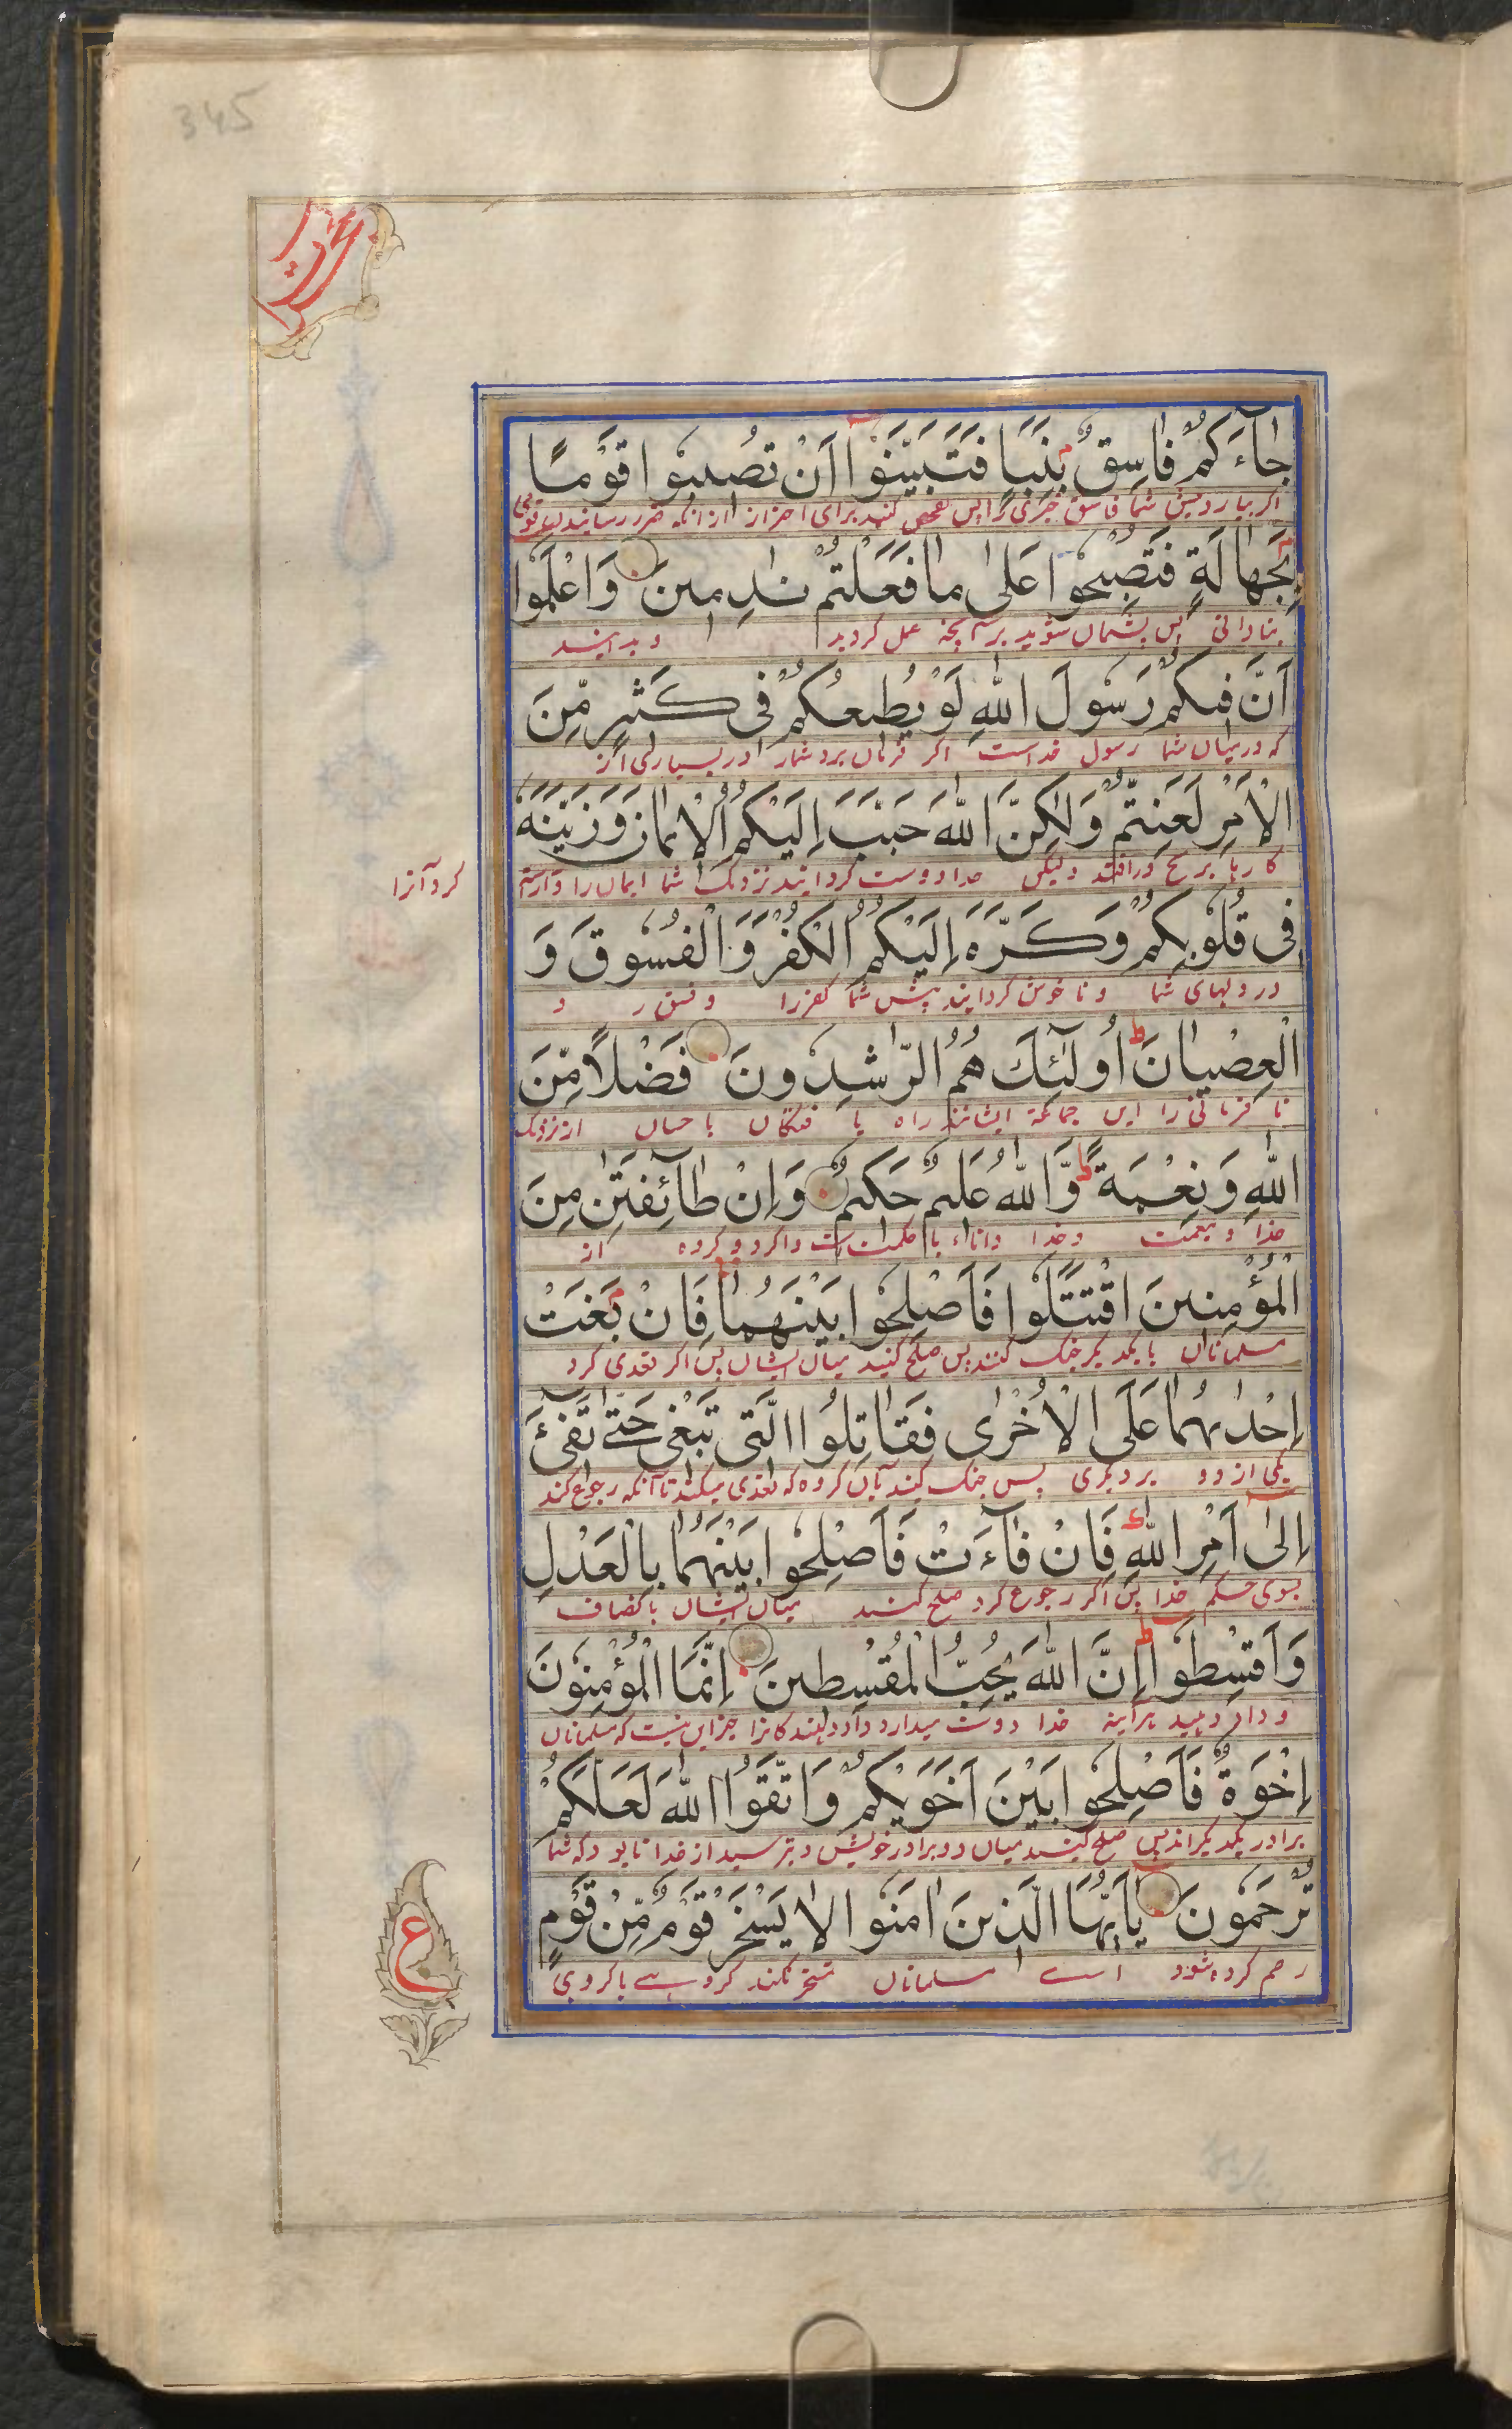 345
حجرات
جَآءَكُمْ فَاسِقٌ بِنَبَاٍ فَتَبَيَّنُوٓا اَنْ تُصِيبُوا قَوْمًا
اگر بیارد پیش شما فاسق خبری را پس تفحص کنید برای احتراز از انکه ضرر رسانید بقومی
بِجَهَالَةٍ فَتُصْبِحُوا عَلٰى مَا فَعَلْتُمْ نٰدِمِينَ وَاعْلَمُوا
بنادانی پس پشیمان شوید بر آنچه عمل کردید و بدانید
اَنَّ فِيكُمْ رَسُولَ اللّٰهِ لَوْ يُطِيعُكُمْ فِى كَثِيرٍ مِّنَ
که درمیان شما رسول خداست اگر فرمان برد شمارا در بسیاری از
الْاَمْرِ لَعَنِتُّمْ وَلٰكِنَّ اللّٰهَ حَبَّبَ اِلَيْكُمُ الْاِيمَانَ وَزَيَّنَهٗ
کارها برنج در افتید ولیکن خدا دوست گردانید نزدیک شما ایمان را و آراسته
کرد آنرا
فِى قُلُوبِكُمْ وَكَرَّهَ اِلَيْكُمُ الْكُفْرَ وَالْفُسُوقَ وَ
در دلهای شما و ناخوش گردانید پیش شما کفر را و فسق را و
الْعِصْيَانَ ط اُولٰٓئِكَ هُمُ الرّٰشِدُونَ فَضْلًا مِّنَ
نافرمانی را این جماعة ایشانند راه یافتگان باحسان از نزدیک
اللّٰهِ وَنِعْمَةً ط وَّاللّٰهُ عَلِيمٌ حَكِيمٌ وَاِنْ طَآئِفَتٰنِ مِنَ
خدا و نعمت و خدا داناء با حکمت است و اگر دو گروه از
الْمُؤْمِنِينَ اقْتَتَلُوا فَاَصْلِحُوا بَيْنَهُمَا فَاِنْ بَغَتْ
مسلمانان با یکدیگر جنک کنند پس صلح کنید میان ایشان پس اگر تعدی کرد
اِحْدٰىهُمَا عَلَى الْاُخْرٰى فَقَاتِلُوا الَّتِى تَبْغِى حَتّٰى تَفِىٓءَ
یکی از دو بر دیگری پس جنک کنید بآن گروه که تعدی میکند تا آنکه رجوع کند
اِلٰٓى اَمْرِ اللّٰهِ فَاِنْ فَآءَتْ فَاَصْلِحُوا بَيْنَهُمَا بِالْعَدْلِ
بسوی حکم خدا پس اگر رجوع کرد صلح کنید میان ایشان بانصاف
وَاَقْسِطُوا ط اِنَّ اللّٰهَ يُحِبُّ الْمُقْسِطِينَ اِنَّمَا الْمُؤْمِنُونَ
و داد دهید هرآینه خدا دوست میدارد داد دهندکانرا جز این نیست که مسلمانان
اِخْوَةٌ فَاَصْلِحُوا بَيْنَ اَخَوَيْكُمْ وَاتَّقُوا اللّٰهَ لَعَلَّكُمْ
برادر یکدیگراند پس صلح کنید میان دو برادر خویش و بترسید از خدا تا بود که شما
تُرْحَمُونَ يٰٓاَيُّهَا الَّذِينَ اٰمَنُوا لَا يَسْخَرْ قَوْمٌ مِّنْ قَوْمٍ
رحم کرده شود اے مسلمانان تمسخر نکند گروهے با گروهی
ع